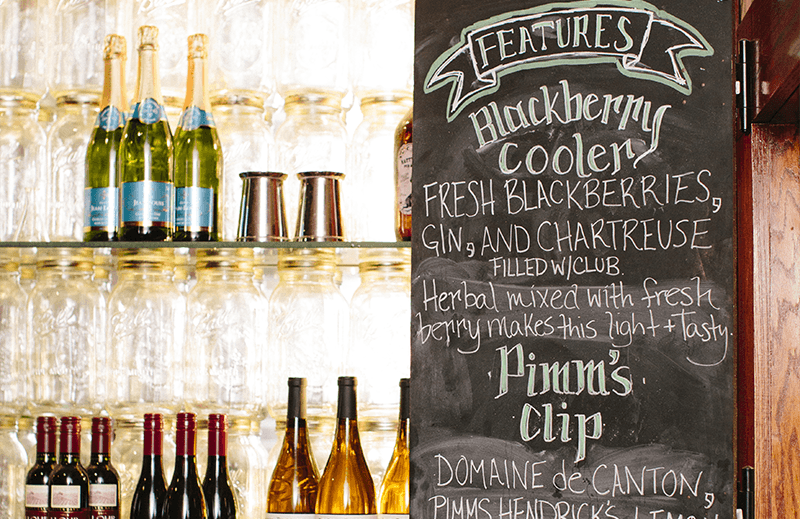 FEATURES
Blackberry
Cooler
FRESH BLACKBERRIES,
GIN, AND CHARTREUSE
FILLED W/CLUB.
Herbal mixed with fresh
berry makes this light + Tasty.
Pimm's
Clip
DOMAINE de CANTON,
PIMMS HENDRICK'S, LEMON